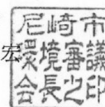 宏
尼崎市
環境審議
会長之印